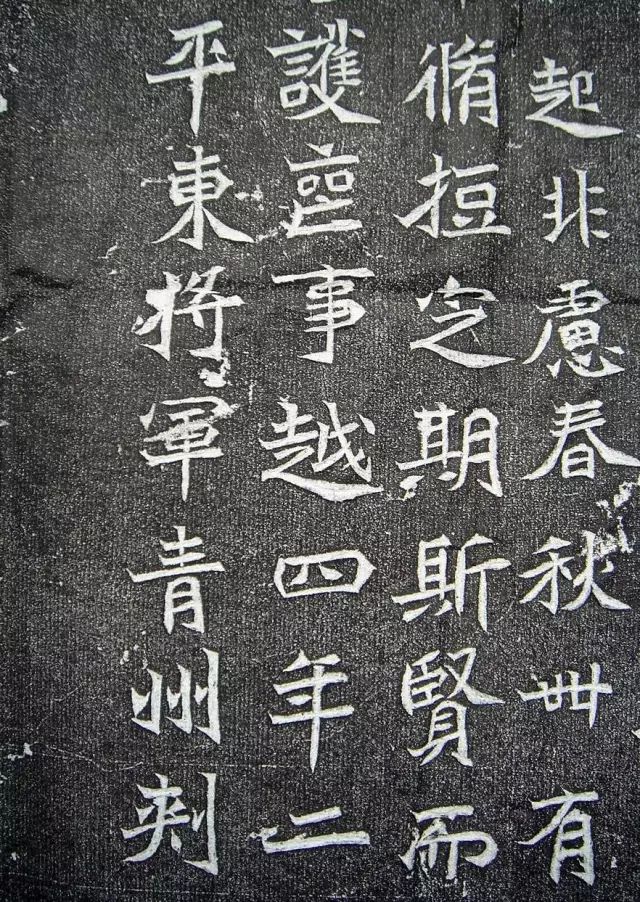 起非慮春秋卌有
脩短定期斯賢而
護喪事越四年二
平東將軍青州刺